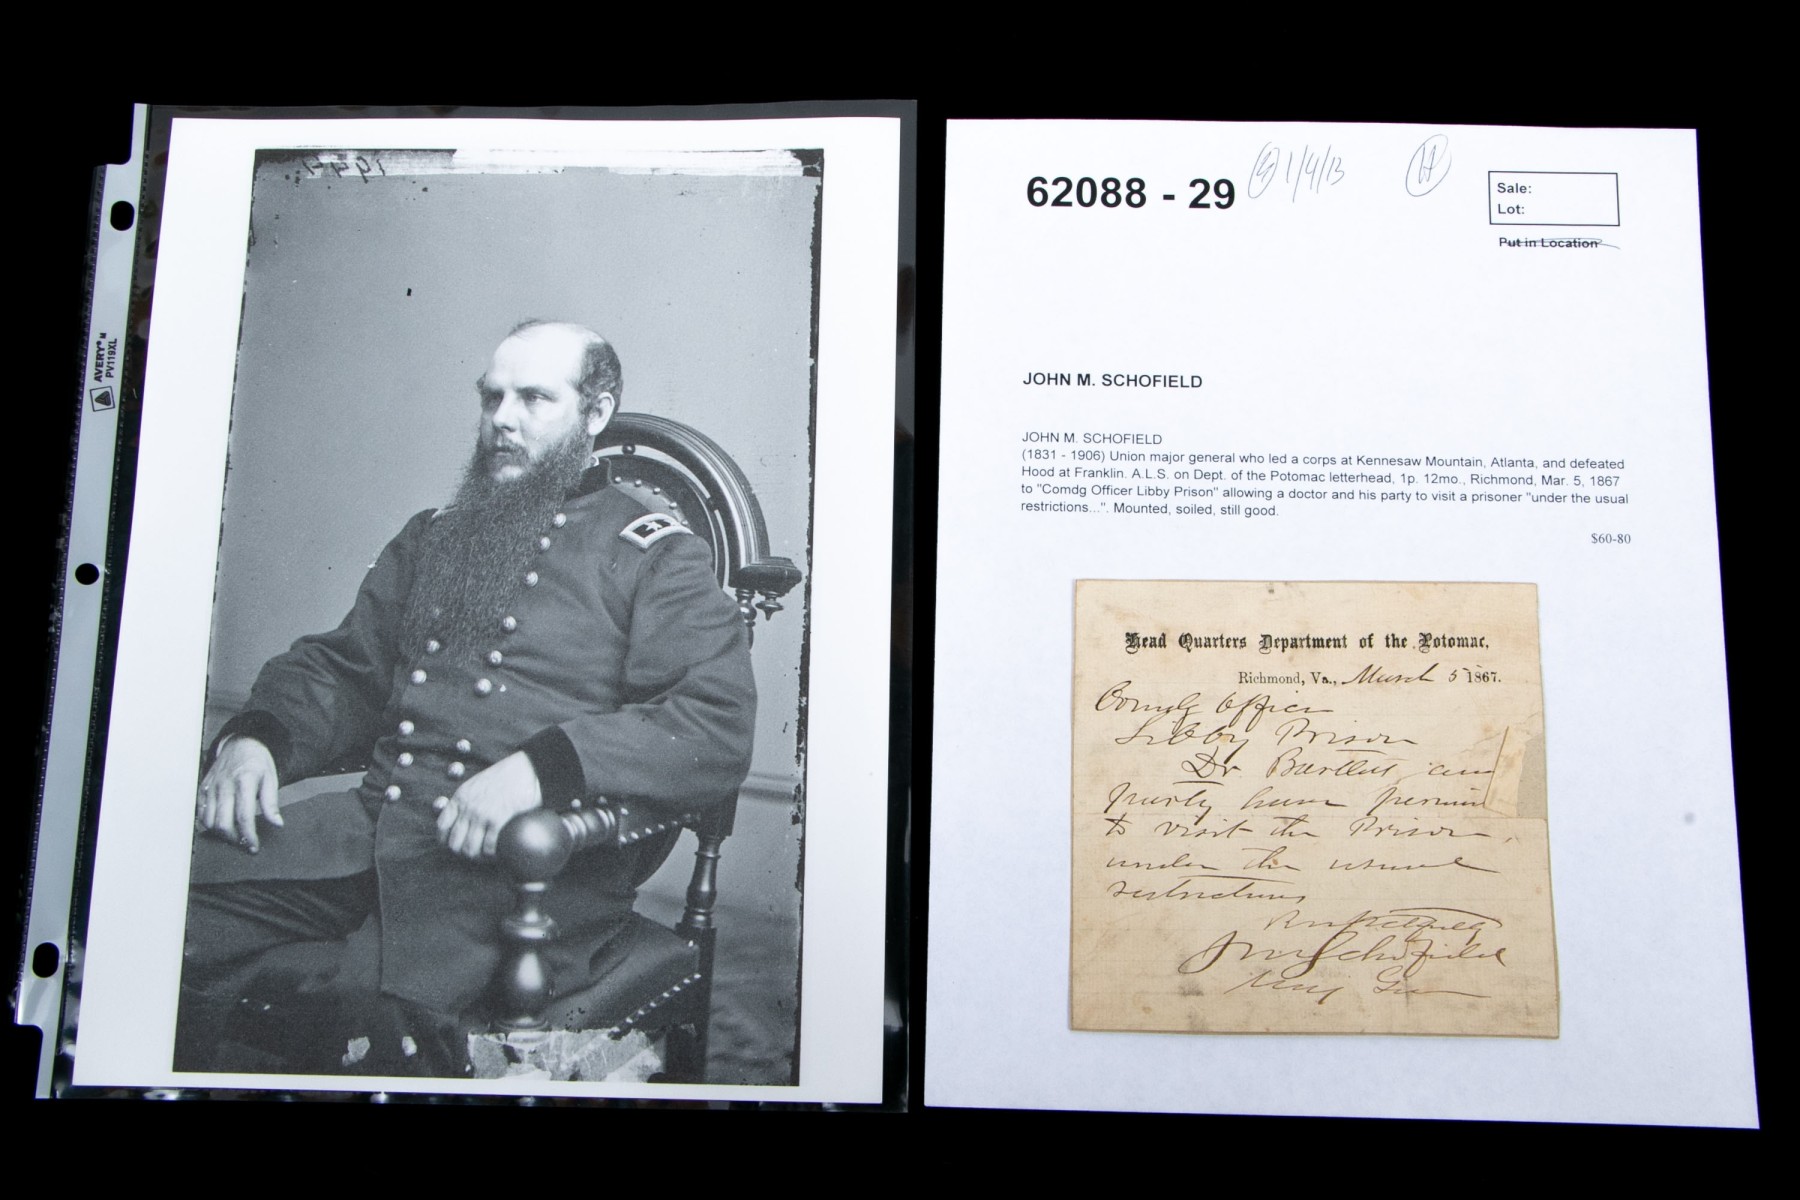 1944
AVERY® N
PV119XL
62088 - 29
1/4/13
Sale:
Lot:
Put in Location
JOHN M. SCHOFIELD
JOHN M. SCHOFIELD
(1831 - 1906) Union major general who led a corps at Kennesaw Mountain, Atlanta, and defeated
Hood at Franklin. A.L.S. on Dept. of the Potomac letterhead, 1p. 12mo., Richmond, Mar. 5, 1867
to "Comdg Officer Libby Prison" allowing a doctor and his party to visit a prisoner "under the usual
restrictions...". Mounted, soiled, still good.
$60-80
Head Quarters Department of the Potomac,
Richmond, Va., March 5 1867.
Comdg Officer
Libby Prison
Dr. Bartlett and
party have
to visit the Prison,
under the usual
restrictions
Respectfully
JM Schofield
Maj Gen